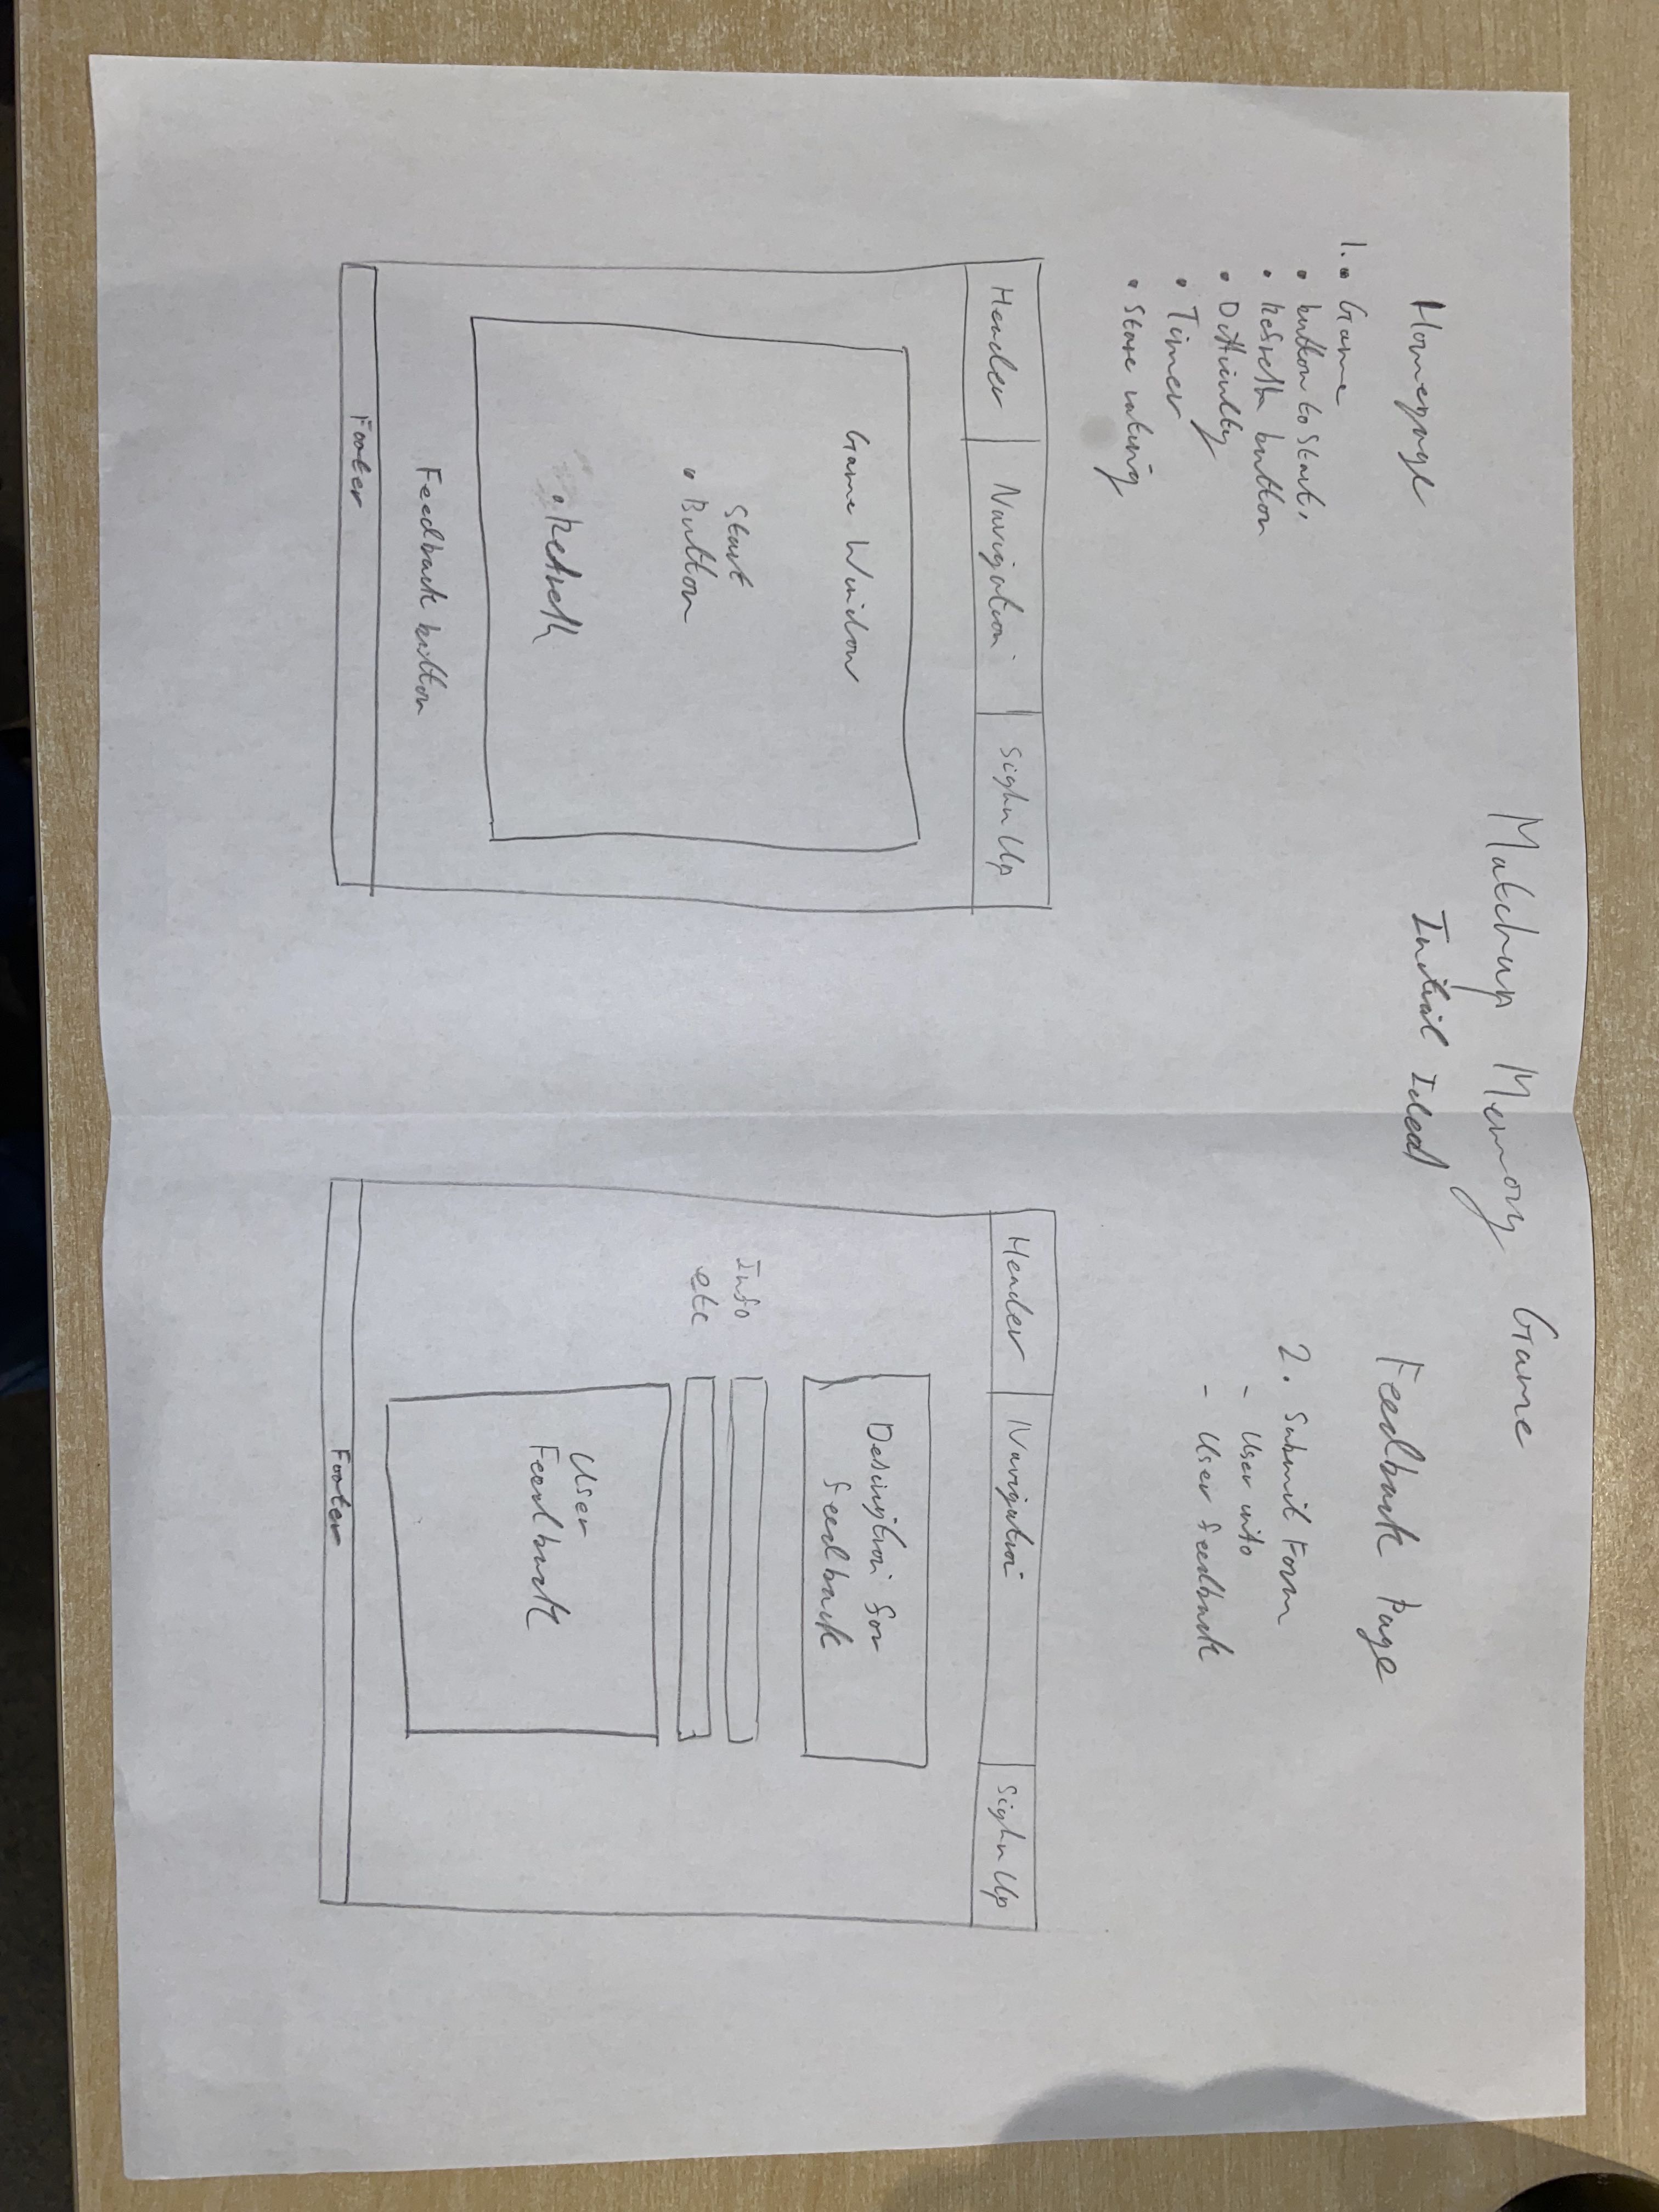 Matchup Memory Game
Initial Idea
Homepage
1. • Game
• button to start,
• Refresh button
• Difficulty
• Timer
• Store rating
Header
Navigation
Sighn Up
Game Window
Start
• Button
• Refresh
Feedback button
Footer
Feedback Page
2. Submit Form
- User info
- User feedback
Header
Navigation
Sighn Up
Desciption for
feedback
Info
etc
User
Feedback
Footer